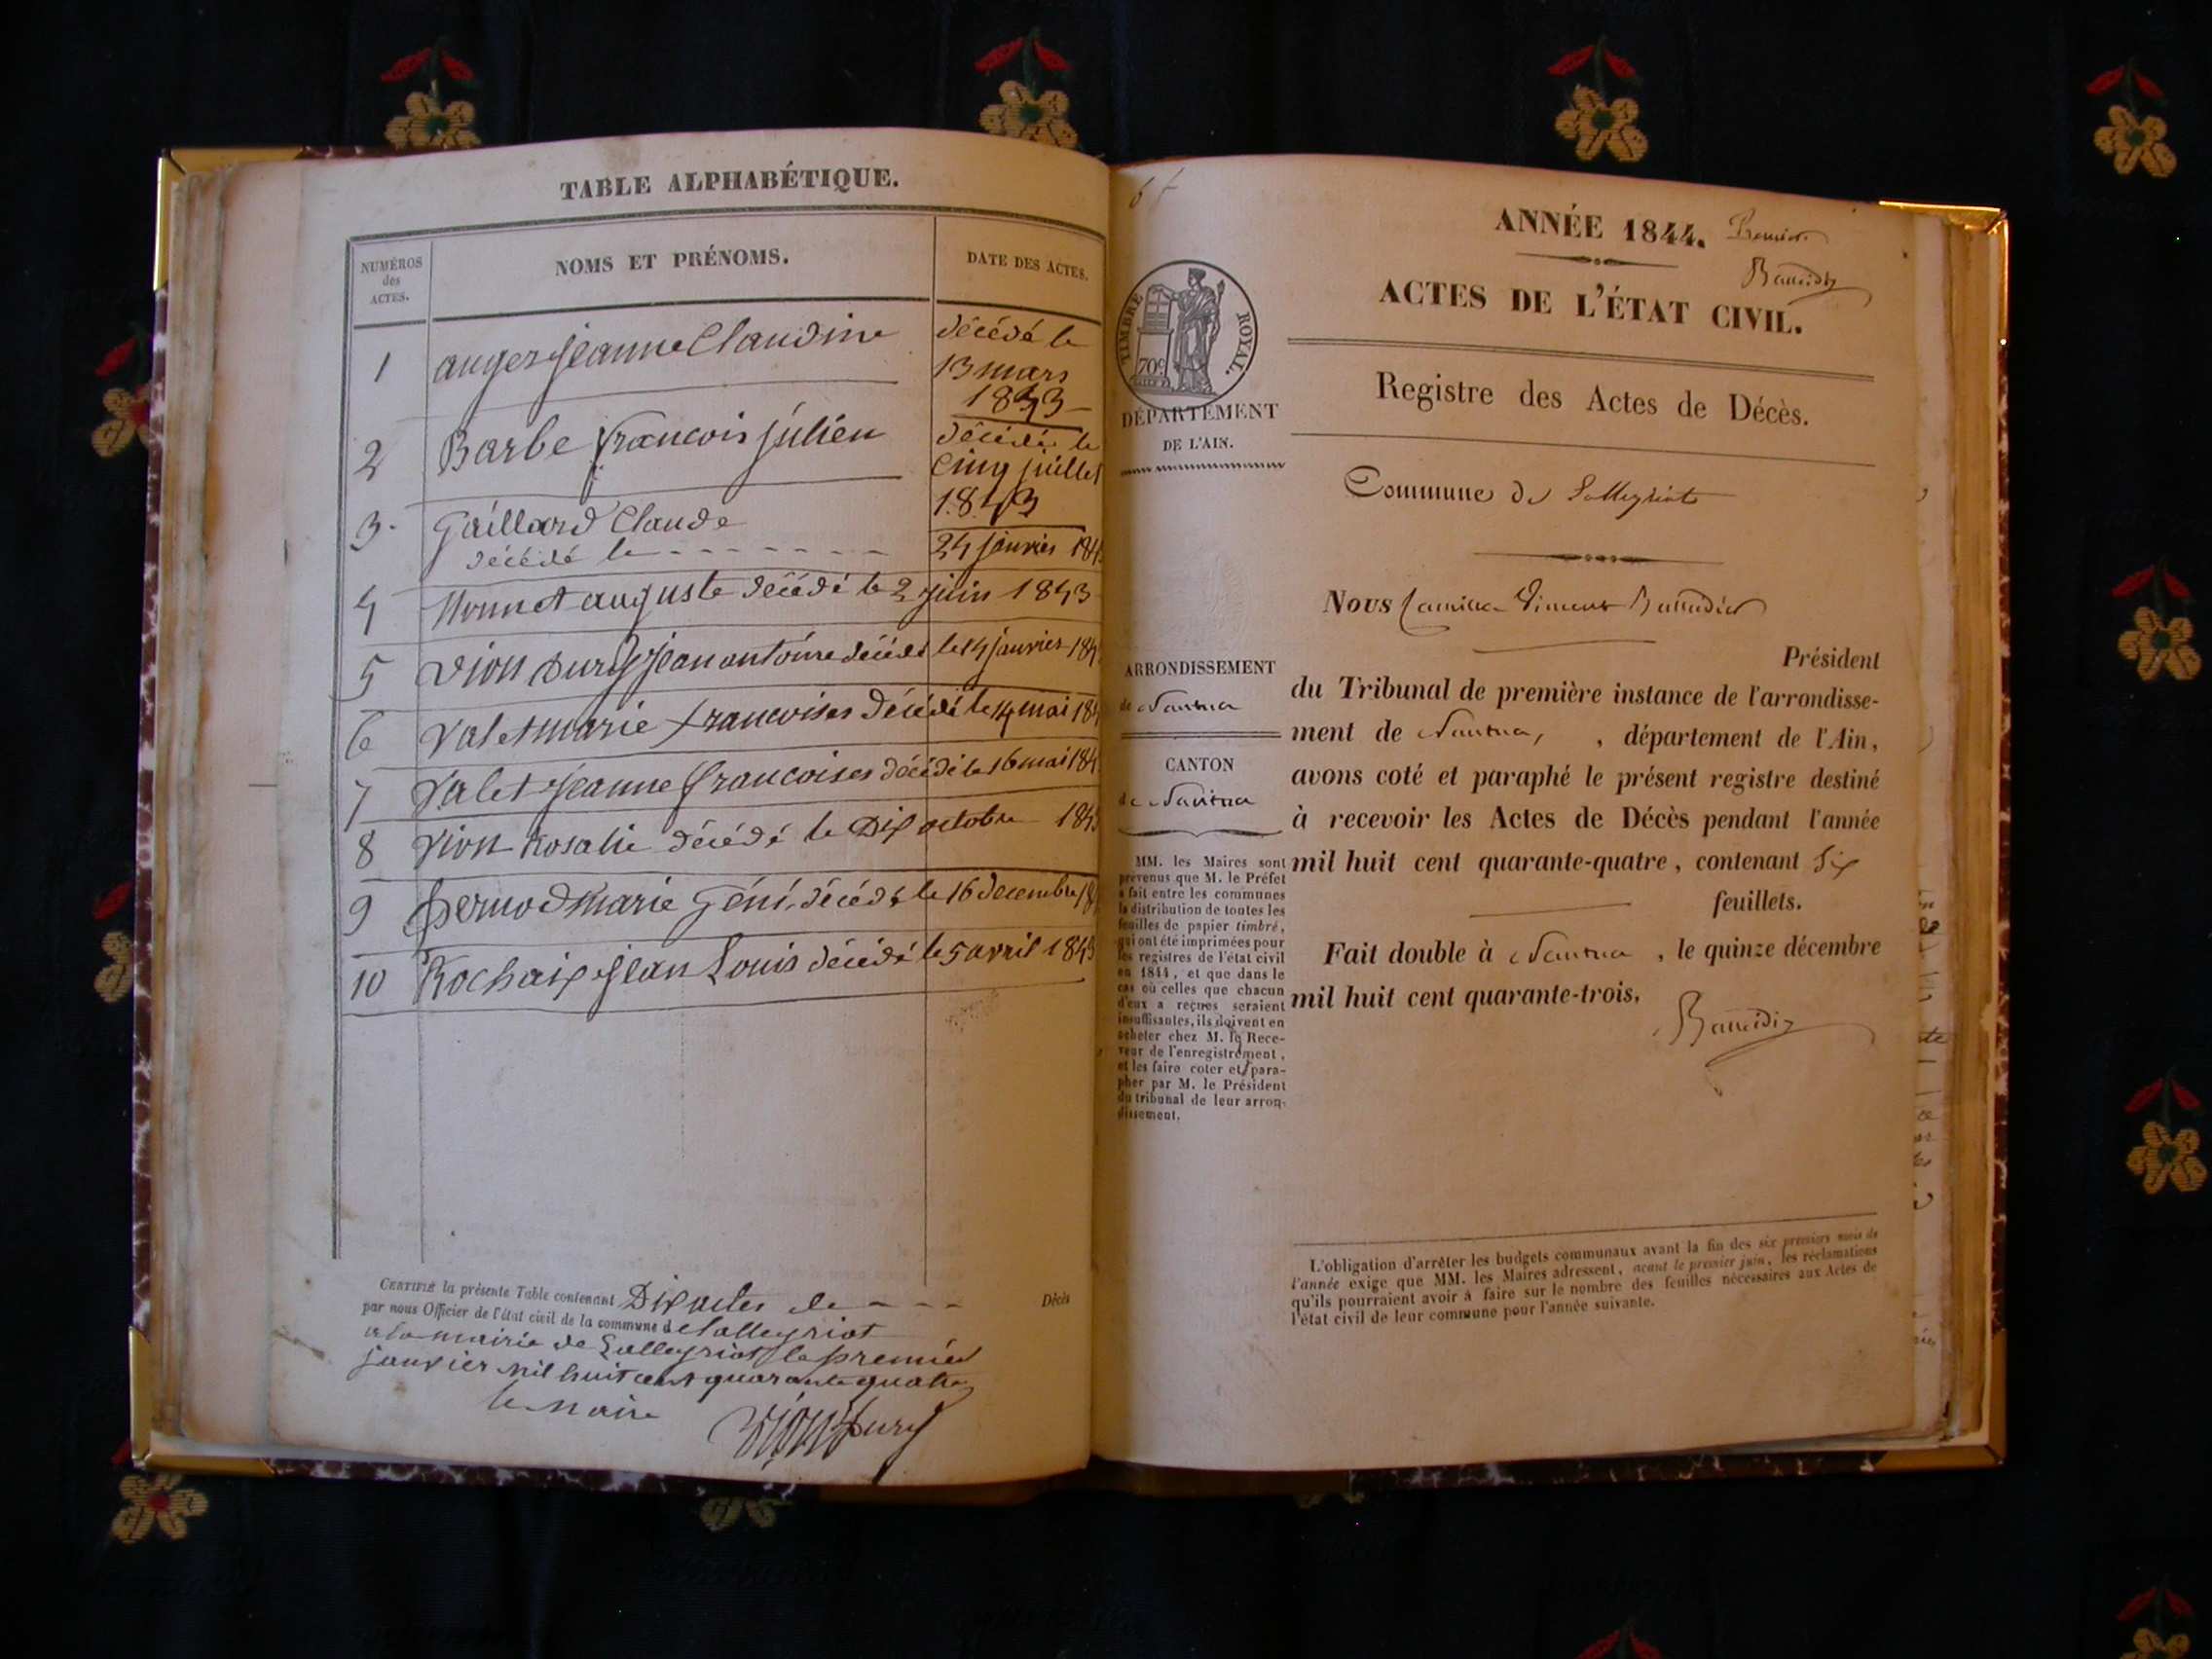 TABLE ALPHABÉTIQUE.
NUMÉROS
des
ACTES.
NOMS ET PRÉNOMS.
DATE DES ACTES.
1 auger jeanne Claudine décédé le
13 mars
1843
2 Barbe francois julien décédé le
cinq juillet
1843
3 Gaillard Claude
décédé le 24 janvier
4 Monnet auguste décédé le 2 juin 1843
5 Vion Dury jean antoine décédé le 14 janvier
6 Valet marie francoises décédé le 14 mai
7 Valet jeanne francoises décédé le 16 mai
8 Vion Rosalie décédé le Dix octobre
9 marie décédé le 16 decembre
10 Rochaix jean Louis décédé le 5 avril 1843
CERTIFIÉ la présente Table contenant Dix actes de Décès
par nous Officier de l'état civil de la commune de
a la mairie de le premier
janvier mil huit cent quarante quatre
le maire
Vion Dury
ANNÉE 1844. Premier
ACTES DE L'ÉTAT CIVIL.
TIMBRE ROYAL.
70c
DÉPARTEMENT
DE L'AIN.
Registre des Actes de Décès.
Commune de
Nous
Président
du Tribunal de première instance de l'arrondisse-
ment de Nantua, , département de l'Ain,
avons coté et paraphé le présent registre destiné
à recevoir les Actes de Décès pendant l'année
mil huit cent quarante-quatre, contenant Six
feuillets.
Fait double à Nantua , le quinze décembre
mil huit cent quarante-trois,
ARRONDISSEMENT
de Nantua
CANTON
de Nantua
MM. les Maires sont
prévenus que M. le Préfet
a fait entre les communes
la distribution de toutes les
feuilles de papier timbré,
qui ont été imprimées pour
les registres de l'état civil
en 1844, et que dans le
cas où celles que chacun
d'eux a reçues seraient
insuffisantes, ils doivent en
acheter chez M. le Rece-
veur de l'enregistrement,
et les faire coter et para-
pher par M. le Président
du tribunal de leur arron-
dissement.
L'obligation d'arrêter les budgets communaux avant la fin des six premiers mois de
l'année exige que MM. les Maires adressent, avant le premier juin, les réclamations
qu'ils pourraient avoir à faire sur le nombre des feuilles nécessaires aux Actes de
l'état civil de leur commune pour l'année suivante.